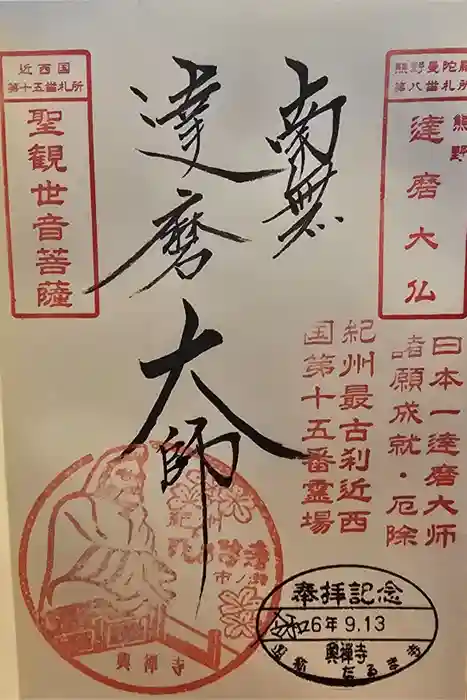 熊野曼陀羅
第八番札所
熊野
達磨大仏
日本一達磨大师
諸願成就・厄除
紀州最古刹近西
国第十五番霊場
南無
達磨大師
近西国
第十五番札所
聖観世音菩薩
紀州
市ノ瀬
興禅寺
奉拝記念
令和6年9.13
興禅寺
だるま寺